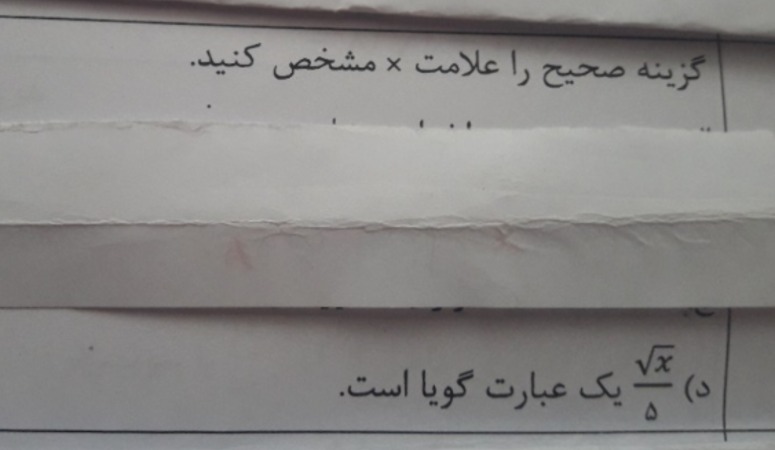 گزینه صحیح را علامت × مشخص کنید.
د) √x/۵ یک عبارت گویا است.